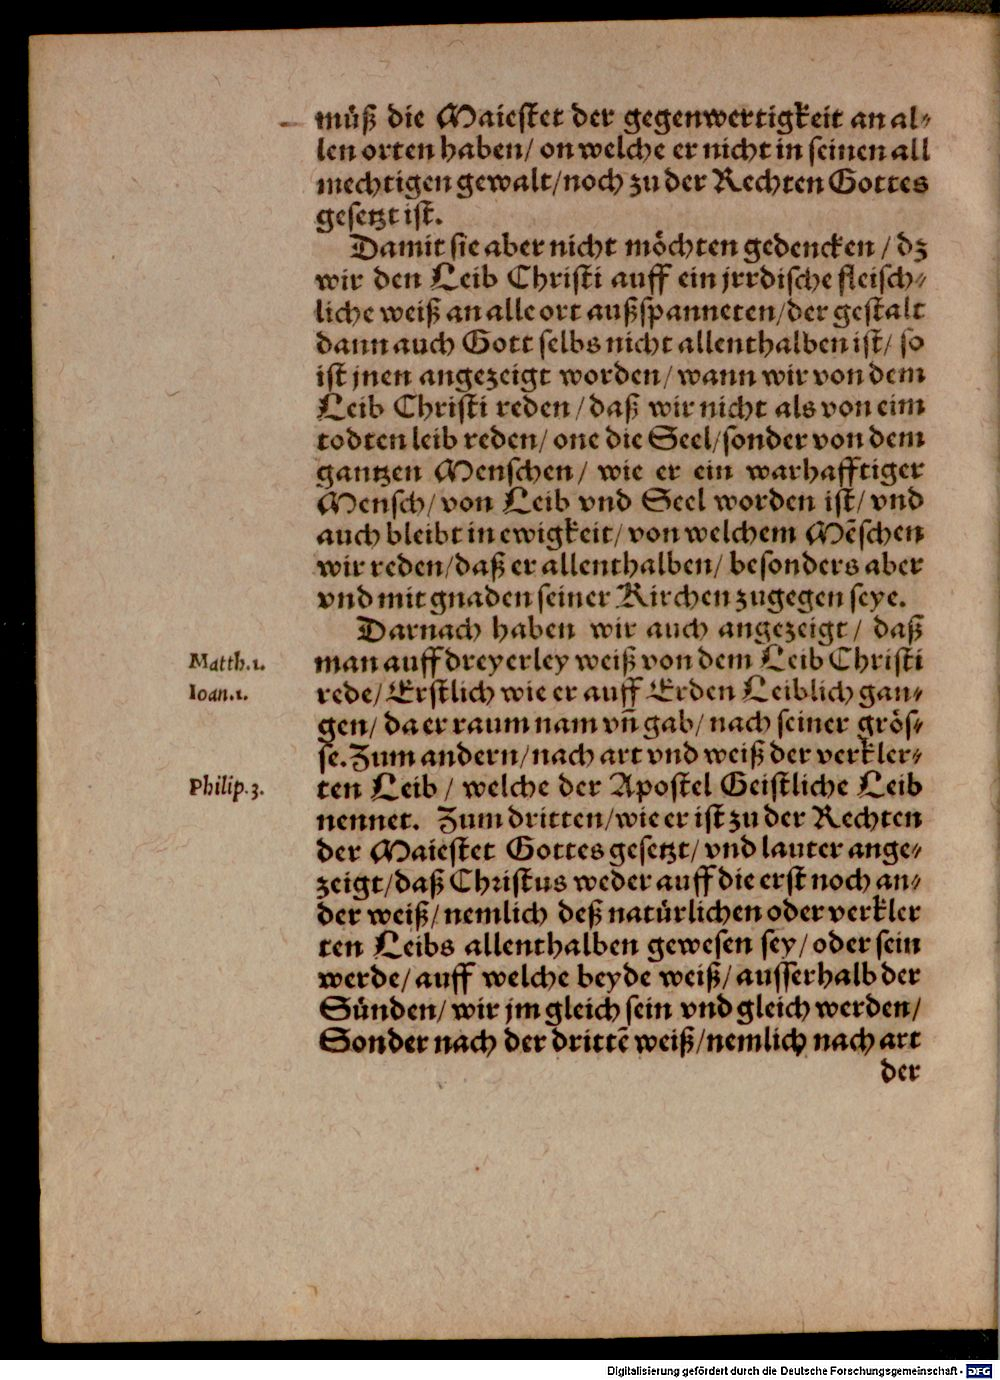 müß die Maiestet der gegenwertigkeit an al⸗
len orten haben/ on welche er nicht in seinen all
mechtigen gewalt/ noch zu der Rechten Gottes
gesetzt ist.
Damit sie aber nicht möchten gedencken / dz
wir den Leib Christi auff ein jrrdische fleisch⸗
liche weiß an alle ort außspanneten/ der gestalt
dann auch Gott selbs nicht allenthalben ist/ so
ist jnen angezeigt worden/ wann wir von dem
Leib Christi reden / daß wir nicht als von eim
todten leib reden/ one die Seel/ sonder von dem
gantzen Menschen/ wie er ein warhafftiger
Mensch/ von Leib vnd Seel worden ist/ vnd
auch bleibt in ewigkeit/ von welchem Mẽschen
wir reden/ daß er allenthalben/ besonders aber
vnd mit gnaden seiner Kirchen zugegen seye.
Darnach haben wir auch angezeigt / daß
Matth. 1.
man auff dreyerley weiß von dem Leib Christi
Ioan. 1.
rede/ Erstlich wie er auff Erden Leiblich gan⸗
gen/ da er raum nam vñ gab/ nach seiner grös⸗
se. Zum andern/ nach art vnd weiß der verkler⸗
Philip. 3.
ten Leib / welche der Apostel Geistliche Leib
nennet. Zum dritten/ wie er ist zu der Rechten
der Maiestet Gottes gesetzt/ vnd lauter ange⸗
zeigt/ daß Christus weder auff die erst noch an⸗
der weiß/ nemlich deß natürlichen oder verkler
ten Leibs allenthalben gewesen sey/ oder sein
werde/ auff welche beyde weiß/ ausserhalb der
Sünden/ wir jm gleich sein vnd gleich werden/
Sonder nach der drittẽ weiß/ nemlich nach art
der
Digitalisierung gefördert durch die Deutsche Forschungsgemeinschaft - DFG